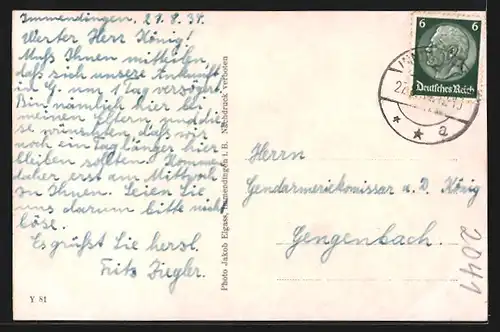 Immendingen, 27.8.37.
Werter Herr König!
Muß Ihnen mitteilen,
daß sich unsere Ankunft
in G. um 1 Tag verzögert.
Bin nämlich hier bei
meinen Eltern und diese
wünschten, daß wir
noch ein Tag länger hier
bleiben sollten. Komme
daher erst am Mittwoch
zu Ihnen. Seien Sie
uns darum bitte nicht
böse.
Es grüßt Sie herzl.
Fritz Ziegler.
Y 81
Photo Jakob Elgass, Immendingen i. B. Nachdruck verboten
6 6
Deutsches Reich
a
Herrn
Gendarmeriekomissar a. D. König
Gengenbach.
2041